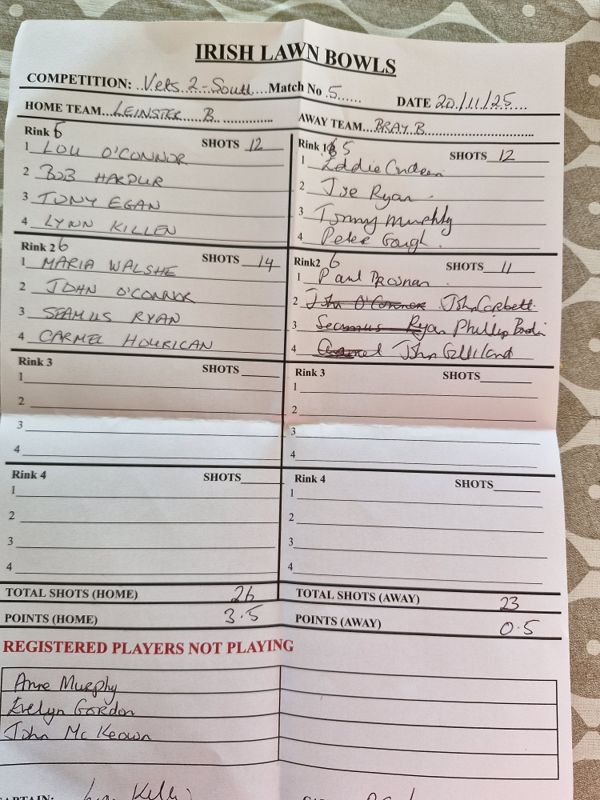 IRISH LAWN BOWLS
COMPETITION: Vets 2-South Match No 5 DATE 20/11/25
HOME TEAM LEINSTER B AWAY TEAM BRAY B
Rink 6 SHOTS 12
1 LOU O'CONNOR
2 BOB HARPUR
3 TONY EGAN
4 LYNN KILLEN
Rink 1 5 SHOTS 12
1 Eddie
2 Joe Ryan
3 Tommy Murphy
4 Peter Gough
Rink 2 6 SHOTS 14
1 MARIA WALSHE
2 JOHN O'CONNOR
3 SEAMUS RYAN
4 CARMEL HOURICAN
Rink2 6 SHOTS 11
1 Paul Brosnan
2 John O'Connor John Corbett
3 Seamus Ryan Phillip
4 Carmel John Gilliland
Rink 3 SHOTS
1
2
3
4
Rink 3 SHOTS
1
2
3
4
Rink 4 SHOTS
1
2
3
4
Rink 4 SHOTS
1
2
3
4
TOTAL SHOTS (HOME) 26 TOTAL SHOTS (AWAY) 23
POINTS (HOME) 3.5 POINTS (AWAY) 0.5
REGISTERED PLAYERS NOT PLAYING
Anne Murphy
Evelyn Gordon
John Mc Keown